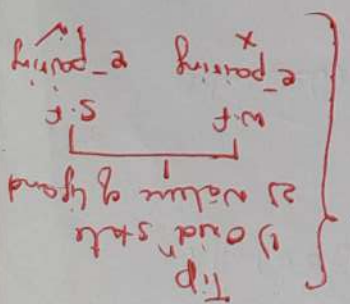 Tip
1) Oxidⁿ state
2) Nature of ligand
W.f S.f
e⁻ pairing e⁻ pairing
× ✓